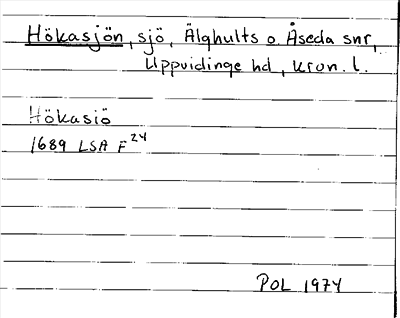 Hökasjön, sjö, Älghults o. Åseda snr,
Uppvidinge hd, Kron. l.
Hökasiö
1689 LSA F 24
POL 1974